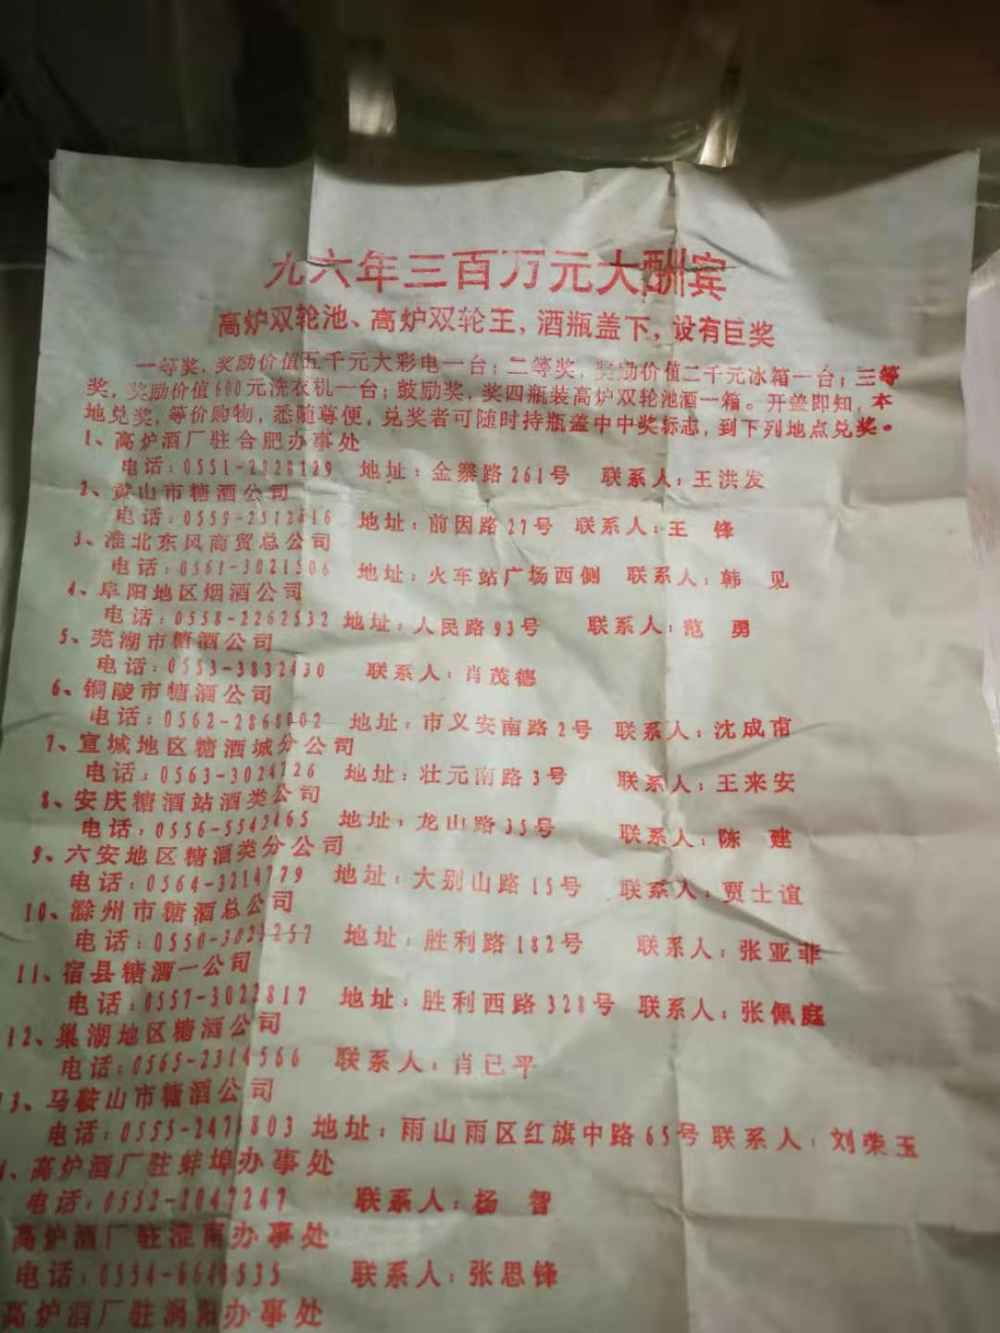 九六年三百万元大酬宾
高炉双轮池、高炉双轮王,酒瓶盖下,设有巨奖
一等奖,奖励价值五千元大彩电一台;二等奖,奖励价值二千元冰箱一台;三等
奖,奖励价值600元洗衣机一台;鼓励奖,奖四瓶装高炉双轮池酒一箱。开盖即知,本
地兑奖,等价购物,悉随尊便,兑奖者可随时持瓶盖中中奖标志,到下列地点兑奖。
1、高炉酒厂驻合肥办事处
电话:0551-2828129 地址:金寨路261号 联系人:王洪发
2、黄山市糖酒公司
电话:0559-2512616 地址:前因路27号 联系人:王 锋
3、淮北东风商贸总公司
电话:0561-3021506 地址:火车站广场西侧 联系人:韩 见
4、阜阳地区烟酒公司
电话:0558-2262532 地址:人民路93号 联系人:范 勇
5、芜湖市糖酒公司
电话:0553-3832430 联系人:肖茂德
6、铜陵市糖酒公司
电话:0562-2868002 地址:市义安南路2号 联系人:沈成甫
7、宣城地区糖酒城分公司
电话:0563-3024726 地址:壮元南路3号 联系人:王来安
8、安庆糖酒站酒类公司
电话:0556-5542465 地址:龙山路35号 联系人:陈 建
9、六安地区糖酒类分公司
电话:0564-3214779 地址:大别山路15号 联系人:贾士谊
10、滁州市糖酒总公司
电话:0550-3023257 地址:胜利路182号 联系人:张亚非
11、宿县糖酒一公司
电话:0557-3023817 地址:胜利西路328号 联系人:张佩庭
12、巢湖地区糖酒公司
电话:0565-2314566 联系人:肖已平
13、马鞍山市糖酒公司
电话:0555-2471803 地址:雨山雨区红旗中路65号 联系人:刘荣玉
、高炉酒厂驻蚌埠办事处
电话:0552-2047247 联系人:杨 智
高炉酒厂驻淮南办事处
电话:0554-6648535 联系人:张思锋
高炉酒厂驻涡阳办事处